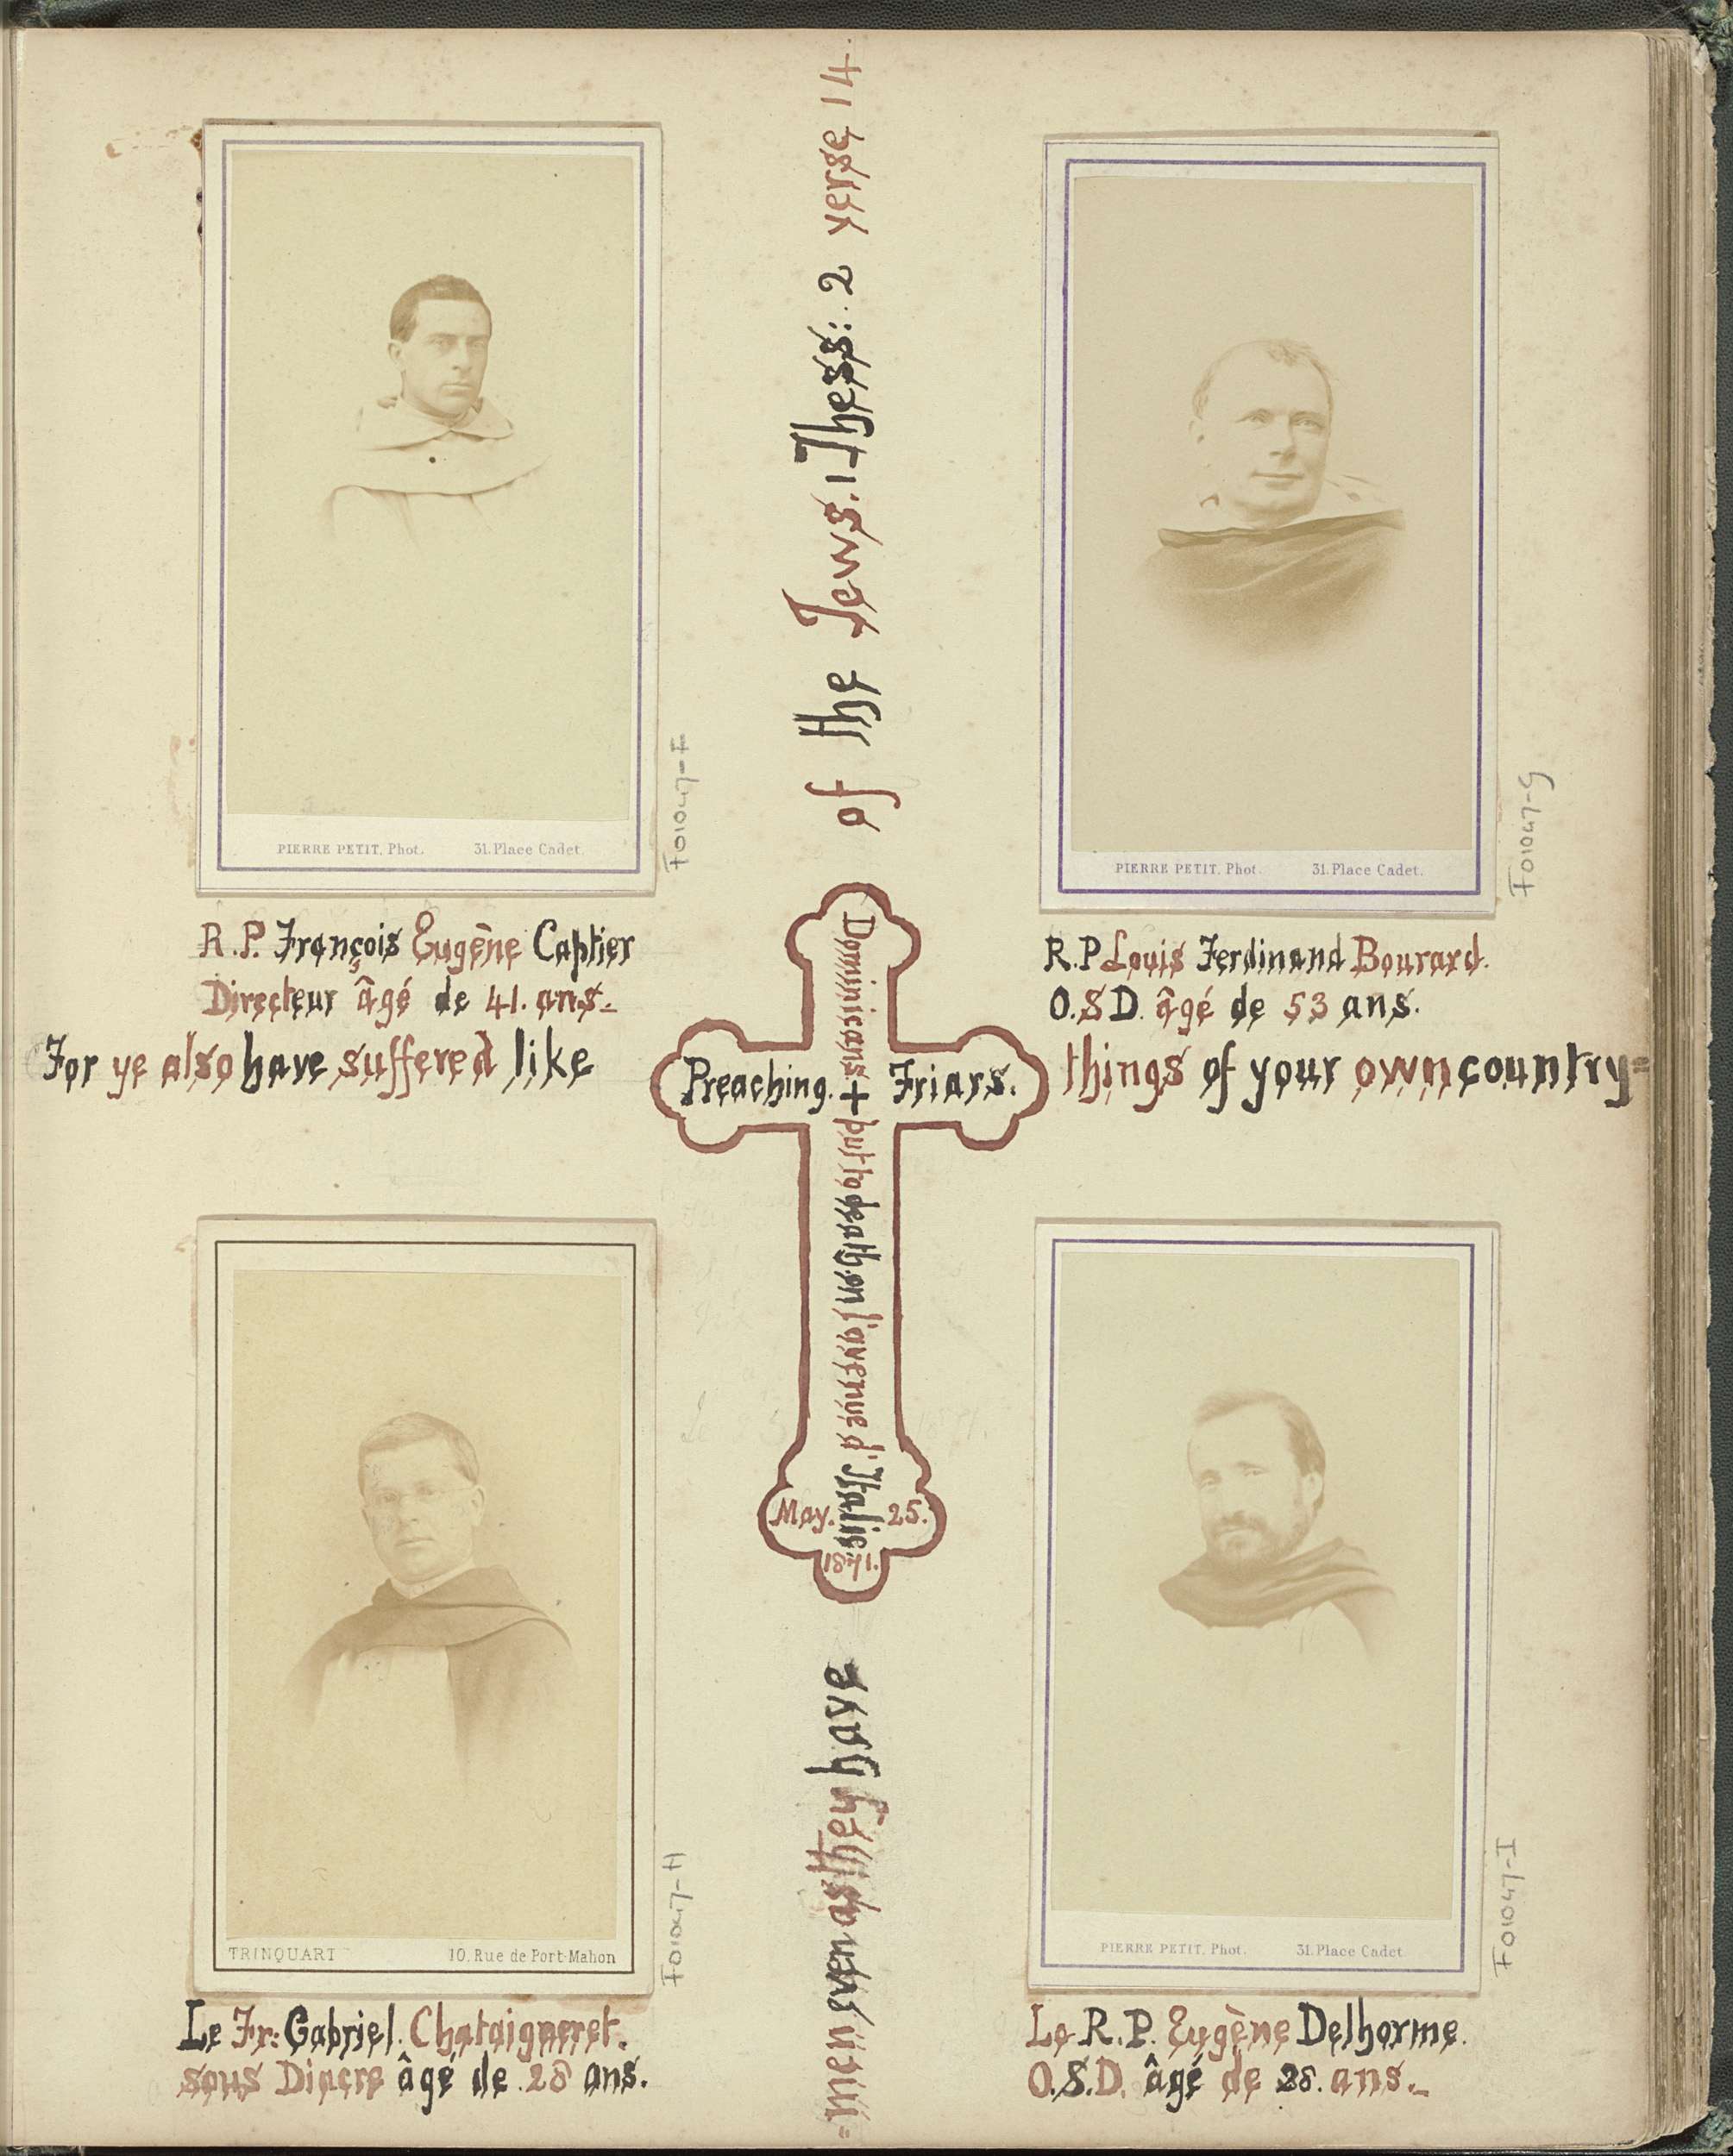 PIERRE PETIT, Phot. 31. Place Cadet.
F01047-F
R.P. François Eugène Captier
Directeur âgé de 41. ans.
PIERRE PETIT, Phot. 31. Place Cadet.
F01047-G
R.P Louis Ferdinand Bourard.
O.S D. âgé de 53 ans.
For ye also have suffered like
things of your own country=
=men even as they have
of the Jews. 1 Thess: 2 verse 14.
Preaching. + Friars.
Dominicans + put to death en l'avenue d'Italie
May. 25.
1871.
TRINQUART 10, Rue de Port-Mahon
F01047-H
Le Fr: Gabriel. Chataigneret.
sous Diacre âgé de 28 ans.
PIERRE PETIT, Phot. 31. Place Cadet
F01047-I
Le R.P. Eugène Delhorme.
O.S.D. âgé de 28. ans.